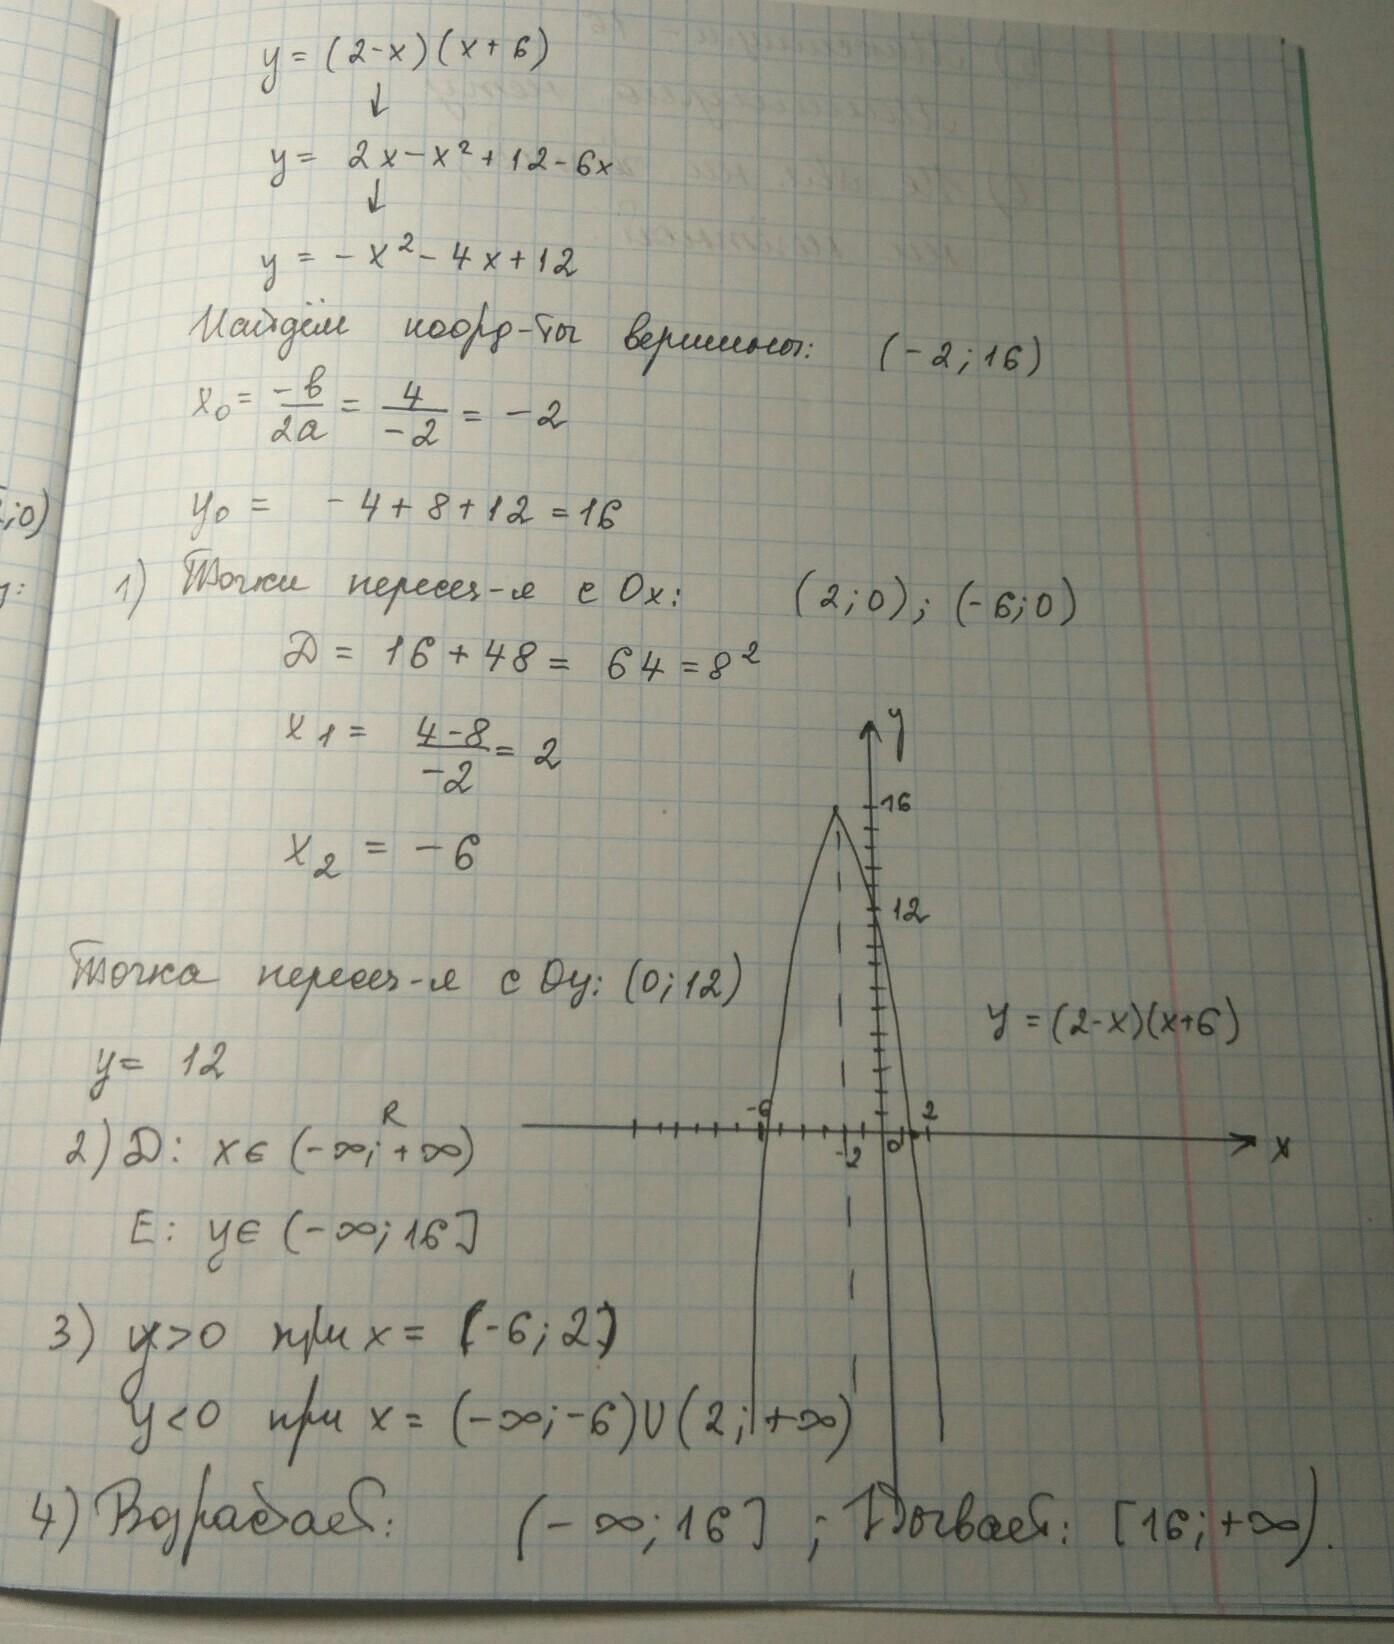 y = (2-x)(x+6)
↓
y = 2x-x²+12-6x
↓
y = -x²-4x+12
Найдём коорд-ты вершины: (-2;16)
x₀ = -b/2a = 4/-2 = -2
y₀ = -4+8+12=16
;0)
1) Точки пересеч-я с Ox: (2;0); (-6;0)
D = 16+48 = 64 = 8²
x₁ = 4-8/-2 = 2
x₂ = -6
Точка пересеч-я с Oy: (0;12)
y = 12
2) D: x∈ (-∞;+∞) R
E: y∈ (-∞;16]
3) y>0 при x = (-6;2)
y<0 при x = (-∞;-6)U(2;+∞)
4) Возрастает: (-∞;16] ; Убывает: [16;+∞).
y
16
12
y = (2-x)(x+6)
-6
-2
0
2
x